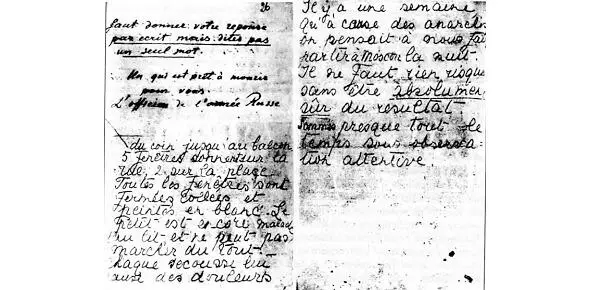 26
faut donner votre reponse
par ecrit mais dites pas
un seul mot.
Un qui est prêt à mourir
pour vous
L'officier de l'armée Russe
du coin jusqu'au balcon
5 fenetres donnent sur la
rue, 2 sur la place.
Toutes les fenêtres sont
fermées collées et
peintes en blanc. Le
petit est encore malade
au lit et ne peut pas
marcher du tout.
chaque secousse lui
des douleurs
Il y a une semaine
qu'à cause des anarch
on pensait à nous fai
partir à Moscou la nuit.
Il ne faut rien risque
sans être absolumen
sûr du resultat
Sommes presque tout le
temps sous observa-
tion attentive